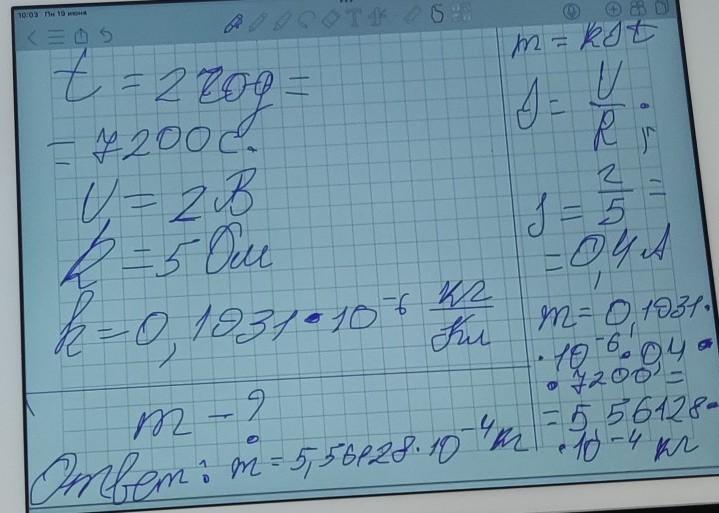 10:03 Пн 19 июня
t = 2 год =
= 7200 с.
U = 2 В
R = 5 Ом
k = 0,1931 • 10⁻⁶ кг/Кл
m - ?
Ответ: m = 5,56128 • 10⁻⁴ кг
m = kJt
J = U/R ;
J = 2/5 =
= 0,4 А
m = 0,1931 •
• 10⁻⁶ • 04 •
• 7200 =
= 5,56128 •
• 10⁻⁴ кг